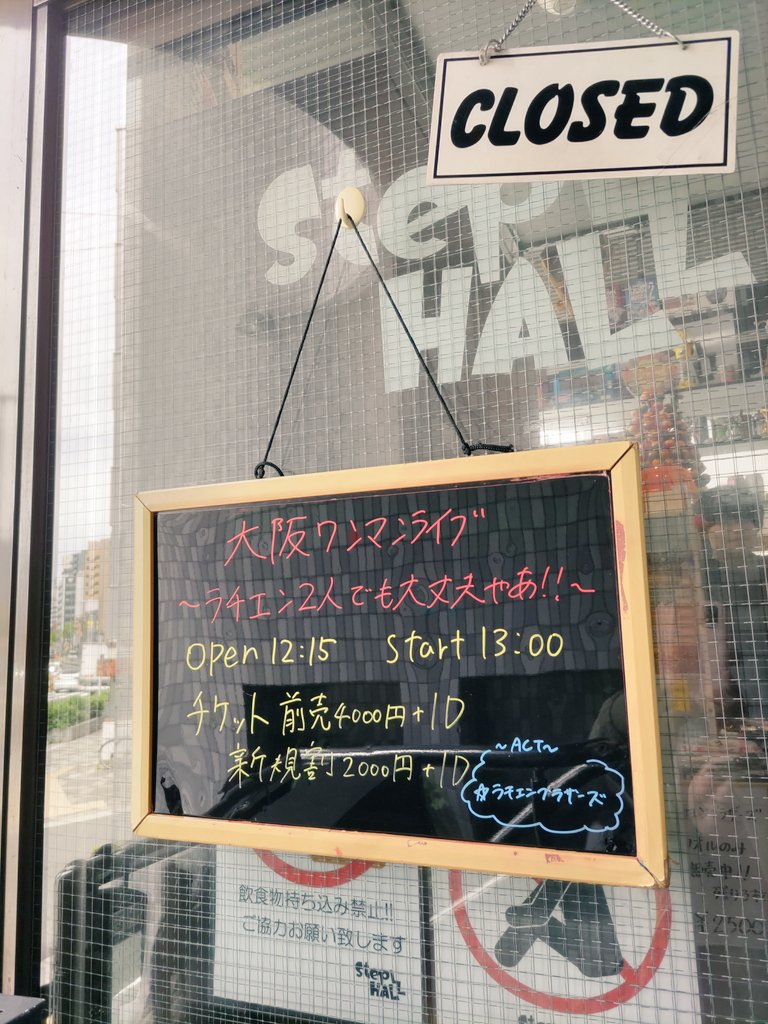 CLOSED
Step
HALL
大阪ワンマンライブ
～ラチエン2人でも大丈夫やあ!!～
open 12:15 start 13:00
チケット 前売4000円+1D
新規割2000円+1D
～ACT～
☆ラチエンブラザーズ
飲食物持ち込み禁止!!
ご協力お願い致します
Step
HALL
¥2500